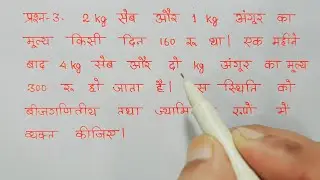 प्रश्न-3. 2 kg सेब और 1 kg अंगूर का
मूल्य किसी दिन 160 रू था। एक महीने
बाद 4 kg सेब और दो kg अंगूर का मूल्य
300 रू हो जाता है। स स्थिति को
बीजगणितीय तथा ज्यामि रूपो में
व्यक्त कीजिए।